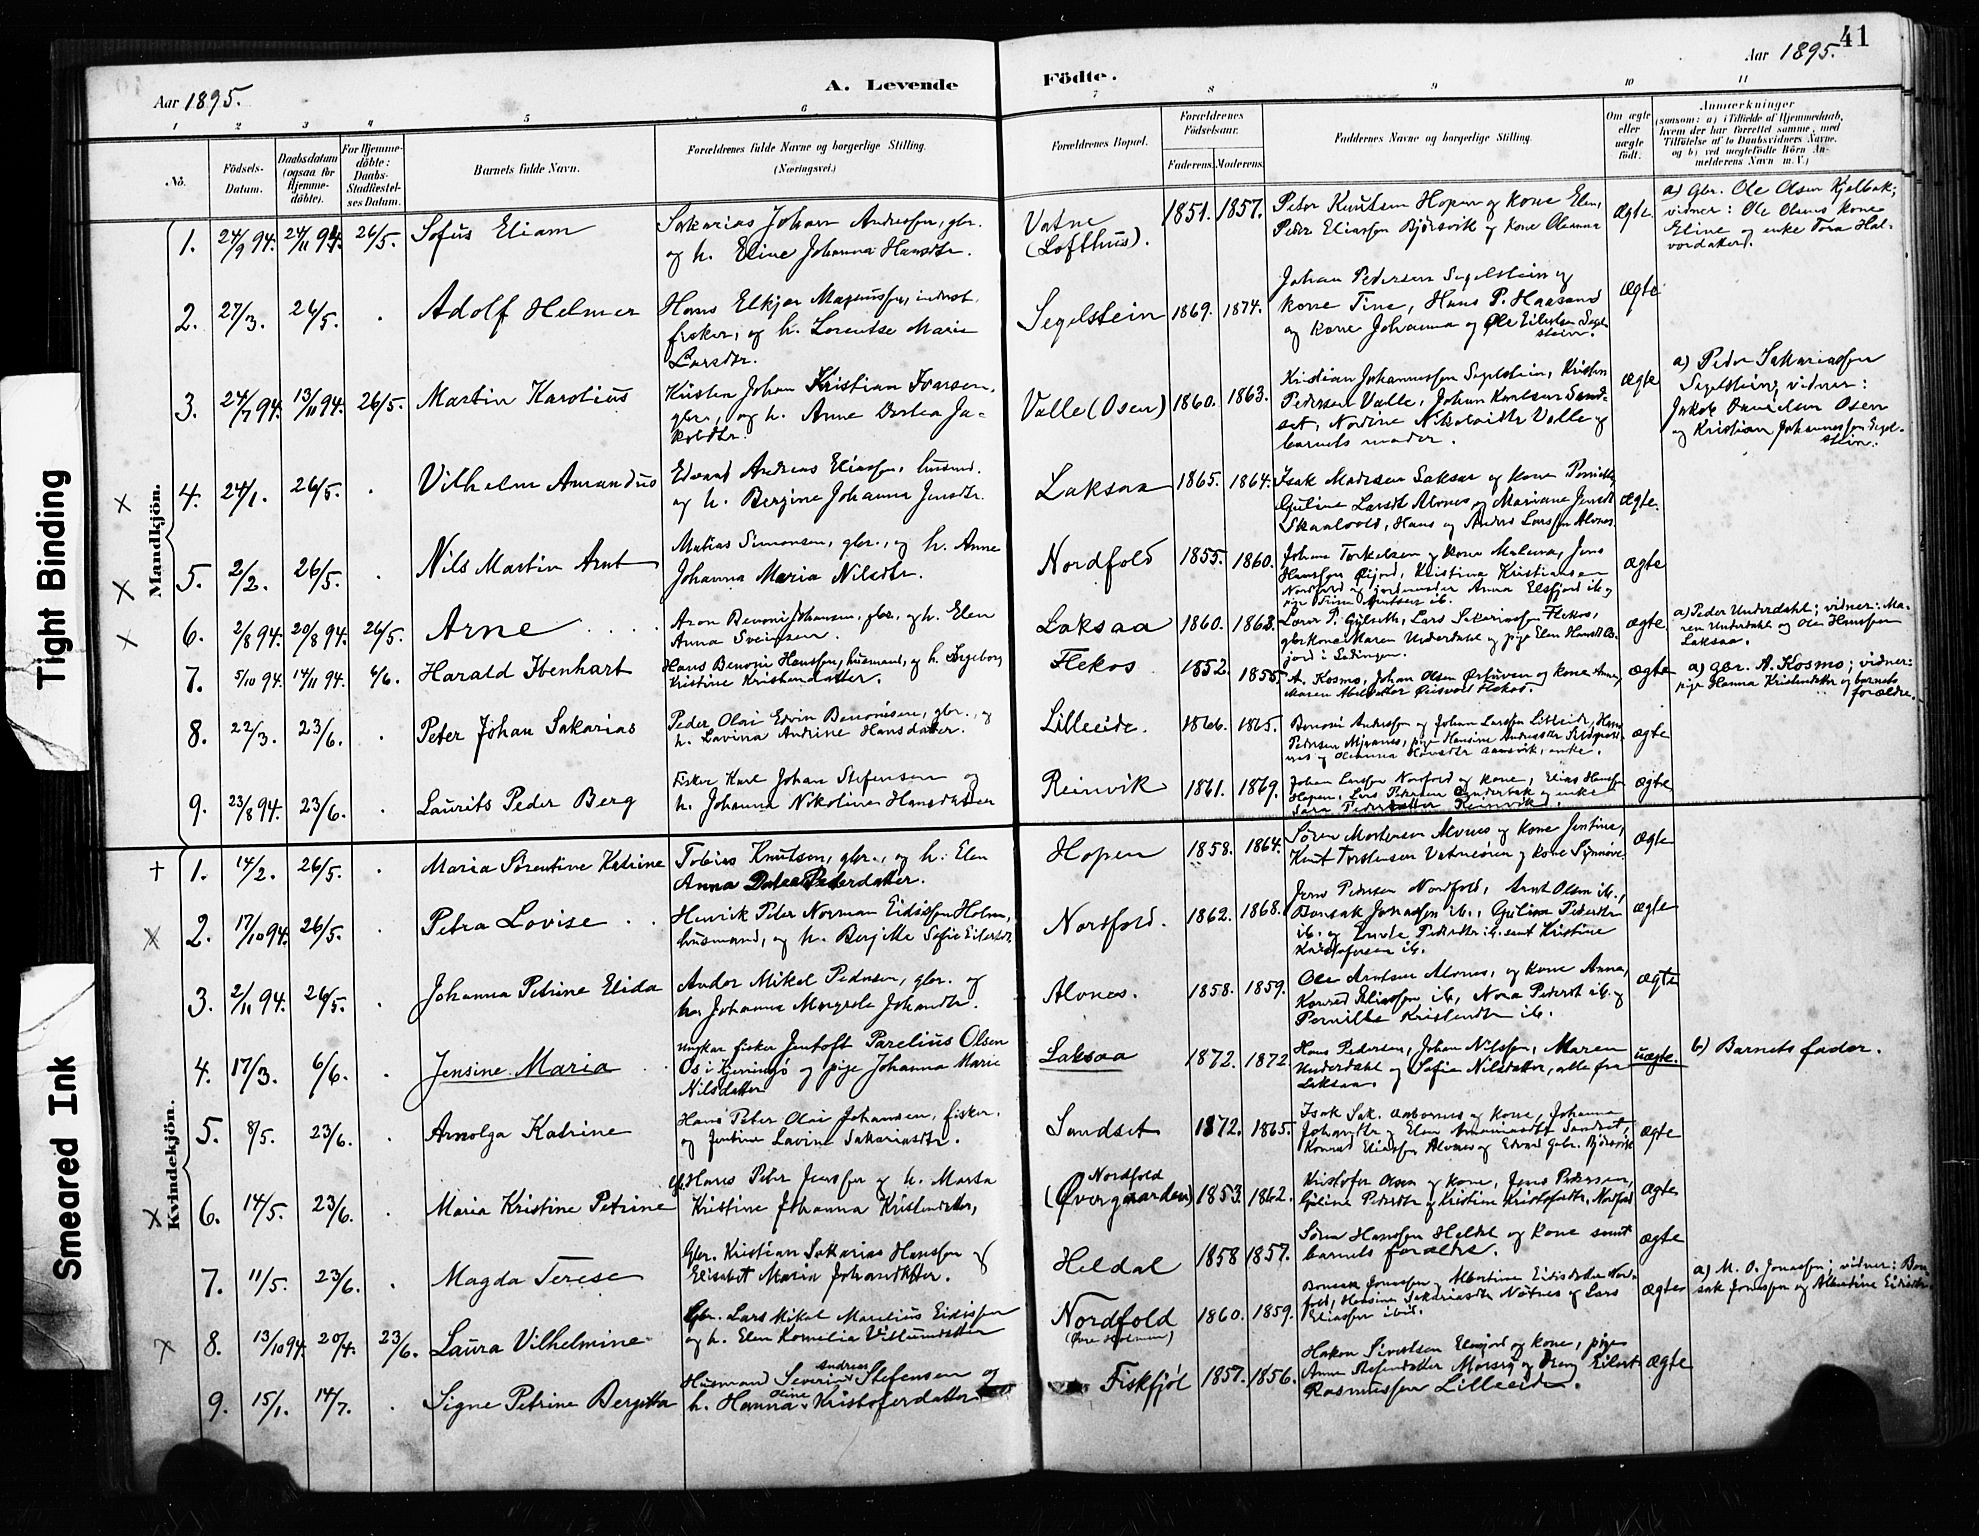 41
Aar 1895.
A. Levende
Födte.
Aar 1895.
1 2 3 4 5 6 7 8 9 10 11
No.
Födsels-Datum.
Daabsdatum (ogsaa for Hjemme-döbte).
For Hjemme-döbte: Daabs-Stadfæstel-ses Datum.
Barnets fulde Navn.
Forældrenes fulde Navne og borgerlige Stilling.
(Næringsvei.)
Forældrenes Bopæl.
Forældrenes Födselsaar.
Faderens. Moderens.
Faddernes Navne og borgerlige Stilling.
Om ægte eller uægte födt.
Anmærkninger
(saasom: a) i Tilfælde af Hjemmedaab,
hvem der har forrettet samme, med
Tilföielse af to Daabsvidners Navne.
og b) ved uægtefödte Börn An-
melderens Navn m. V.)
Mandkjön.
1. 24/9 94. 24/11 94. 26/5. Sofus Eliam
Sakarias Johan Andreassen, gbr.
og h. Eline Johanna Hansdtr.
Vatne
(Lofthus).
1851. 1857.
Peter Knutsen Hopen og kone Elen,
Peder Eliassen Bjørsvik og kone Oleanna
Ægte
a) Gbr. Ole Olsen Kjelbak;
vidner: Ole Olsens kone
Eline og enke Tora Hal-
vordatter.
2. 27/3. 26/5. . Adolf Helmer
Hans Elkjær Magnussen, inderst,
fisker, og h. Lorentse Marie
Larsdtr.
Segelstein 1869. 1874.
Johan Pedersen Segelstein og
kone Tine, Hans P. Haasand
og kone Johanna og Ole Eilertsen Segel-
stein.
Ægte
3. 24/7 94. 13/11 94. 26/5. Martin Karolius
Kristen Johan Kristian Ivarsen,
gbr., og h. Anne Dortea Ja-
kobdtr.
Valle (Osen) 1860. 1863.
Kristian Johannessen Segelstein, Kristen
Pedersen Valle, Johan Karlsen Sand-
set, Nordine Nikolaidtr Valle og
barnets moder.
Ægte
a) Peder Sakariassen
Segelstein; vidner:
Jakob Danielsen Osen
og Kristian Johannessen Segel-
stein.
4. 24/1. 26/5. . Vilhelm Amandus
Edvard Andreas Eliassen, husmd.
og h. Bergine Johanna Jensdtr.
Laksaa 1865. 1864.
Isak Madsen Laksaa og kone Pernille,
Guline Larsdt Alvnes og Mariane Jensdt
Skaalvold, Hans og Anders Larssen Alvnes.
Ægte.
5. 2/2. 26/5. . Nils Martin Arnt
Matias Simonsen, gbr., og h. Anne
Johanna Maria Nilsdtr.
Nordfold 1855. 1860.
Johan Torkelsen og kone Malena, Jens
Hanssen Øijord, Kristine Kristiansen
Nordfold og jordmoder Anna Elsfjord ib. og
pige Trine Arntsen ib.
Ægte
6. 2/8 94. 20/8 94. 26/5. Arne
Aron Benoni Johansen, gbr., og h. Elen
Anna Sveinsen.
Laksaa 1860. 1863.
Lærer P. Gylseth, Lars Sakariassen Flekos,
gbrkone Maren Underdahl og pige Elen Hansdt
jord i Lødingen.
ægte
a) Peder Underdahl; vidner: Ma-
ren Underdahl og Ole Hanssen
Laksaa.
7. 5/10 94. 14/11 94. 6/6. Harald Ibenhart
Hans Benoni Hanssen, husmand, og h. Ingeborg
Kristine Kristendatter.
Flekos 1852. 1855.
A. Kosmo, Johan Olsen Ørbuvsen og kone Anne,
ægte
a) Gbr. A. Kosmo; vidner:
pige Hanna Kristendatter og barnets
forældre.
8. 22/3. 23/6. . Peter Johan Sakarias
Peder Olai Edvin Benonisen, gbr., og
h. Lavina Andrine Hansdatter.
Lilleeide. 1866. 1865.
Benoni Andersen og Johan Larssen Lilleeide, Hans
ægte
9. 23/8 94. 23/6. Laurits Peder Berg
Fisker Karl Johan Stefensen og
h. Johanna Nikoline Hansdatter
Reinvik 1861. 1869.
Johan Larssen Nordfold og kone, Elias Hanssen
Hopen, Lars Pedersen Sønderbak og enke
Sara Pedersdatter Reinvik.
ægte
Kvindekjön.
1. 14/2. 26/5. . Maria Sørentine Katrine
Tobias Knutsen, gbr., og h. Elen
Anna Dotea Pederdatter.
Hopen 1858. 1864.
Søren Mortensen Alvnes og kone Jentine,
Knut Torstensen Vatneøren og kone Synnøve
ægte
2. 17/10 94. 26/5. . Petra Lovise
Henrik Peter Norman Eidissen Holm,
husmand, og h. Bergitte Sofie Eilertsdt.
Nordfold. 1862. 1868.
Jens Pedersen Nordfold, Arnt Olsen ib.,
Bonsak Jonassen ib., Guline Pedersdtr
ib. og Pedersdtr ib. samt Kristine
Kristofersen ib.
ægte
3. 2/11 94. 26/5. . Johanna Petrine Elida
Andor Mikal Pedersen, gbr. og
h. Johanna Margrete Johandtr.
Alvnes. 1858. 1859.
Ole Arntsen Alvnes, og kone Anna,
Konrad Eliassen ib., Nora Pedersdt ib. og
Pernille Kristendtr ib.
ægte
4. 17/3. 6/6. . Jensine Maria
ungkar fisker Jentoft Parelius Olsen
Os i Gjerringø og pige Johanna Marie
Nilsdatter
Laksaa 1872. 1872
Hans Pedersen, Johan Nilssen, Maren
Underdahl og Sofie Nilsdatter, alle fra
Laksaa.
uægte.
b) Barnets fader.
5. 8/5. 23/6. . Arnolga Katrine
Hans Peter Olai Johansen, fisker,
og Jentine Lavine Sakariasdtr.
Sandset 1872. 1865.
Isak Sak. Aabornes og kone, Johanna
Johansdtr og Elen Sandset,
Konrad Eliassen Alvnes og Edvard Gabr. Bjørsvik
ægte
6. 14/5. 23/6. . Maria Kristine Petrine
Gbr. Hans Peter Jenssen og h. Marta
Kristine Johanna Kristendatter,
Nordfold
(Øvergaarden) 1853. 1862.
Kristofer Olsen og kone, Jens Pedersen,
Guline Pedersdtr og Kristine Kristoferdtr. Nordfold
ægte
7. 11/5. 23/6. . Magda Terese
Gbr. Kristian Sakarias Hanssen og
Elisabet Maria Johandatter.
Heldal 1858 1857.
Søren Hanssen Heldal og kone samt
barnets forældre.
ægte
8. 13/10 94. 20/4. 23/6. Laura Vilhelmine
Gbr. Lars Mikal Marelius Eidissen
og h. Elen Kornelia Villumdatter
Nordfold
(Øvre Holmen)
1860. 1859.
Bonsak Jonassen og Albertine Eidisdatter Nord-
fold, Hansine Sakariasdtr Nötnes og Lars
Eliassen ibid.
ægte
a) M. O. Jonassen; vidner: Bon-
sak Jonassen og Albertine Eidisdtr.
9. 15/1. 14/7. . Signe Petrine Bergitta
Husmand Severin Andreas Stefensen og
h. Hanna Oline Kristoferdatter.
Fiskfjöl 1857. 1856.
Hakon Sivertsen Elvfjord og kone, pige
Anne Stefendatter Mørsry og dreng Eilert
Rasmussen Lilleeide.
ægte
Tight Binding
Smeared Ink